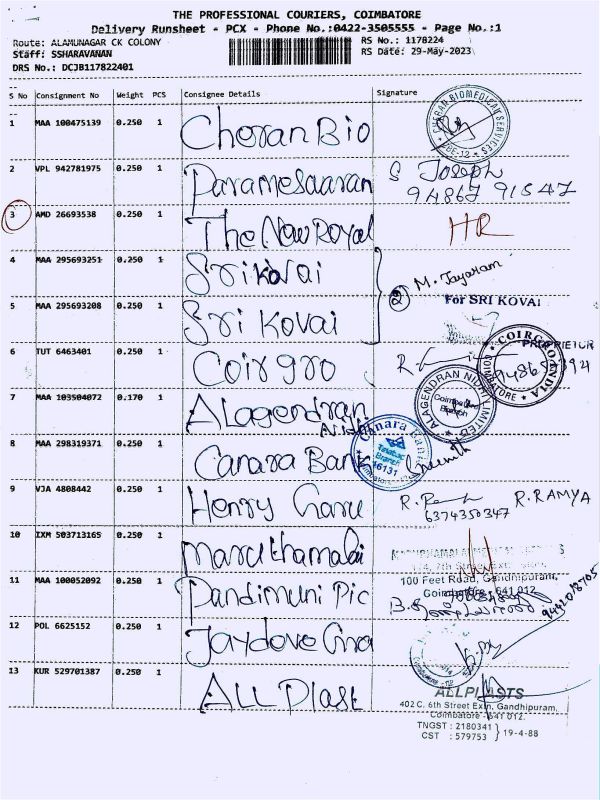 THE PROFESSIONAL COURIERS, COIMBATORE
Delivery Runsheet - PCX - Phone No.:0422-3505555 - Page No.:1
Route: ALAMUNAGAR CK COLONY
RS No.: 1178224
Staff: SSHARAVANAN
RS Date: 29-May-2023
DRS No.: DCJB117822401
S No Consignment No Weight PCS Consignee Details Signature
1 MAA 100475139 0.250 1 Cheran Bio
CHERAN BIOMEDICAL SERVICES
2 VPL 942781975 0.250 1 Paramesaaran S Joseph
94867 91547
3 AMD 26693538 0.250 1 The New Royal HR
4 MAA 295693251 0.250 1 Sri kovai
2 M. Jayaram
For SRI KOVAI
5 MAA 295693208 0.250 1 Sri Kovai
PROPRIETOR
6 TUT 6463401 0.250 1 Coirgro
COIRGRO INDIA
COIMBATORE
7 MAA 103504072 0.170 1 ALagendran
Nidhi
ALAGENDRAN NIDHI LIMITED
Coimbatore
Branch
8 MAA 298319371 0.250 1 Canara Bank
Canara Bank
Tatabad
Branch
16131
9 VJA 4808442 0.250 1 Henry Garu
R. RAMYA
6374350347
10 IXM 503713165 0.250 1 Maruthamalai
100 Feet Road, Gandhipuram,
Coimbatore - 641 012.
11 MAA 100052092 0.250 1 Pandimuni Pic
9442018705
12 POL 6625152 0.250 1 Jaydove Gra
13 KUR 529701387 0.250 1 ALL Plast
ALLPLASTS
402 C, 6th Street Extn, Gandhipuram,
Coimbatore - 641 012.
TNGST : 2180341
CST : 579753 19-4-88